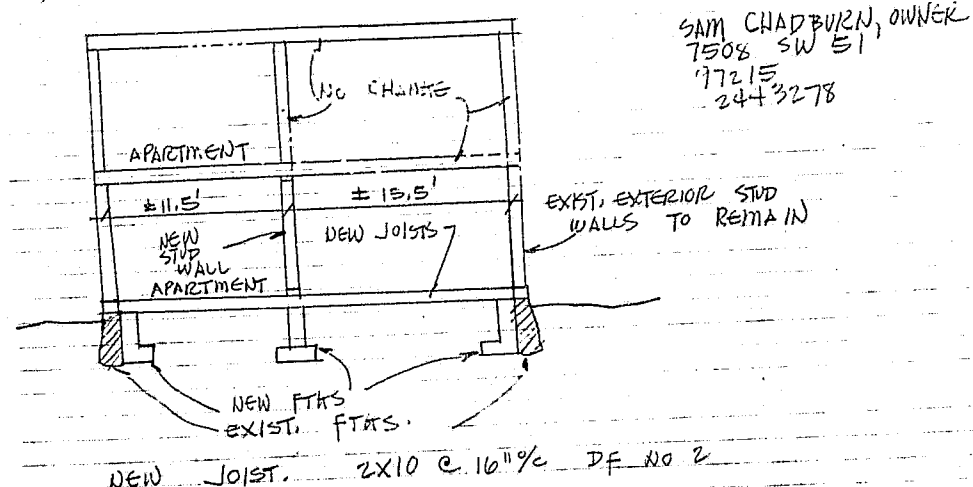 SAM CHADBURN, OWNER
7508 SW 51
97215
244 3278
NO CHANGE
APARTMENT
±11.5'
± 15.5'
EXIST. EXTERIOR STUD
WALLS TO REMAIN
NEW
STUD
WALL
NEW JOISTS
APARTMENT
NEW FTGS
EXIST. FTGS.
NEW JOIST. 2X10 @ 16" o/c DF NO 2